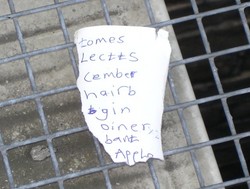 tomes
Lectts
cember
hairb
gin
oiner
bant
Apple